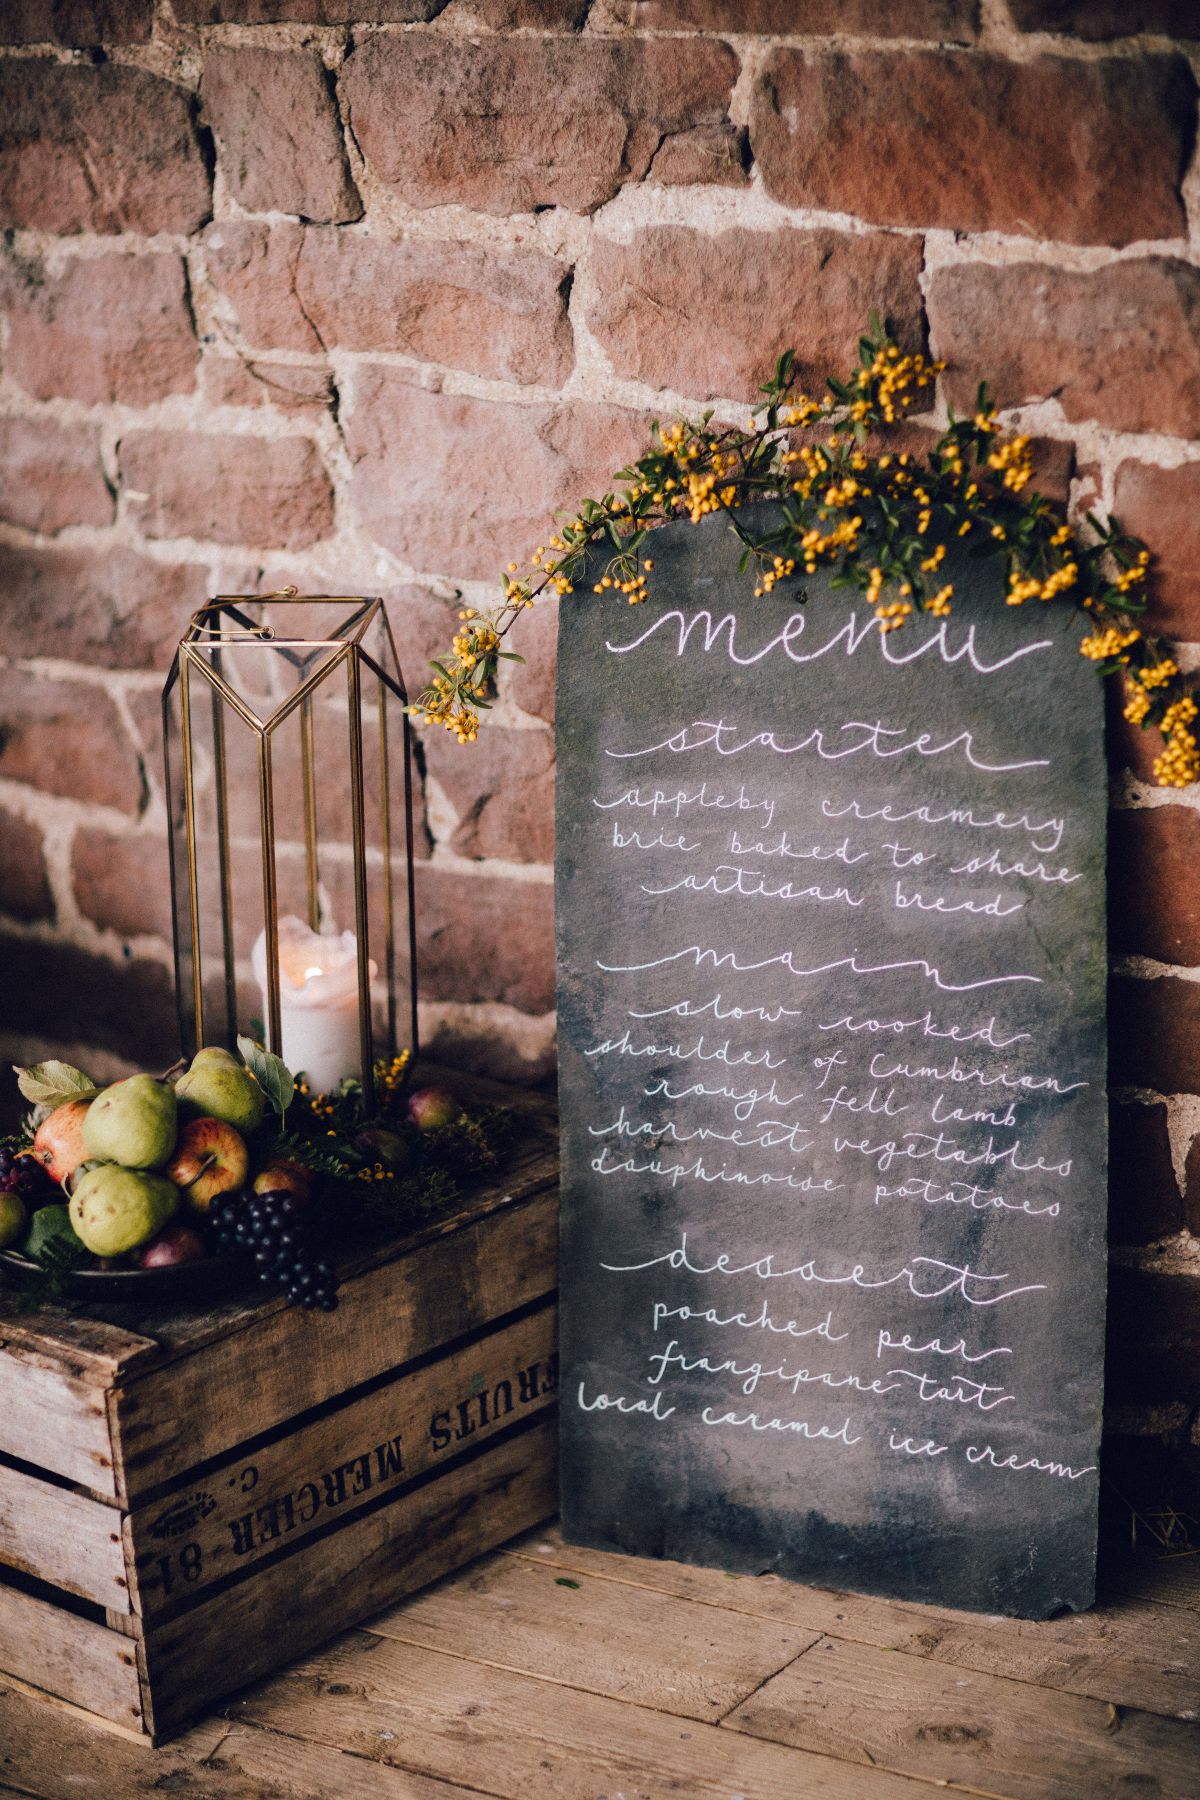 menu
starter
appleby creamery
brie baked to share
artisan bread
main
slow cooked
shoulder of Cumbrian
rough fell lamb
harvest vegetables
dauphinoise potatoes
dessert
poached pear
frangipane tart
local caramel ice cream
FRUITS MERCIER 81
C.